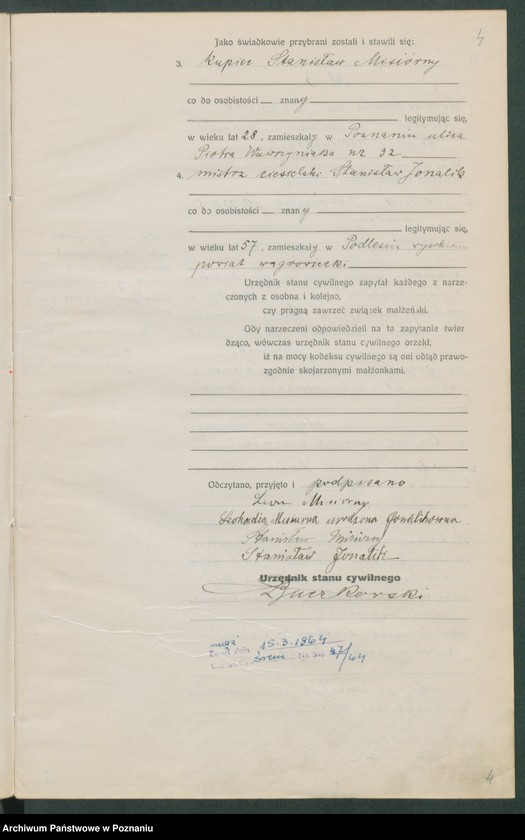 4
Jako świadkowie przybrani zostali i stawili się:
3. kupiec Stanisław Misiórny
co do osobistości znany
legitymując się,
w wieku lat 28, zamieszkały w Poznaniu ulica
Piotra Wawrzyniaka nr 32
4. mistrz ciesielski Stanisław Jonalik
co do osobistości znany
legitymując się,
w wieku lat 57, zamieszkały w Podlesiu
powiat wągrowiecki
Urzędnik stanu cywilnego zapytał każdego z narze-
czonych z osobna i kolejno,
czy pragną zawrzeć związek małżeński.
Gdy narzeczeni odpowiedzieli na to zapytanie twier
dząco, wówczas urzędnik stanu cywilnego orzekł,
iż na mocy kodeksu cywilnego są oni odtąd prawo-
zgodnie skojarzonymi małżonkami.
Odczytano, przyjęto i podpisano
Leon Misiorny
Leokadia Misiorna urodzona Jonalikowna
Stanisław Misiorny
Stanisław Jonalik
Urzędnik stanu cywilnego
mąż
Zmarł dnia 15.3.1964
Śrem 47/64
4
Archiwum Państwowe w Poznaniu